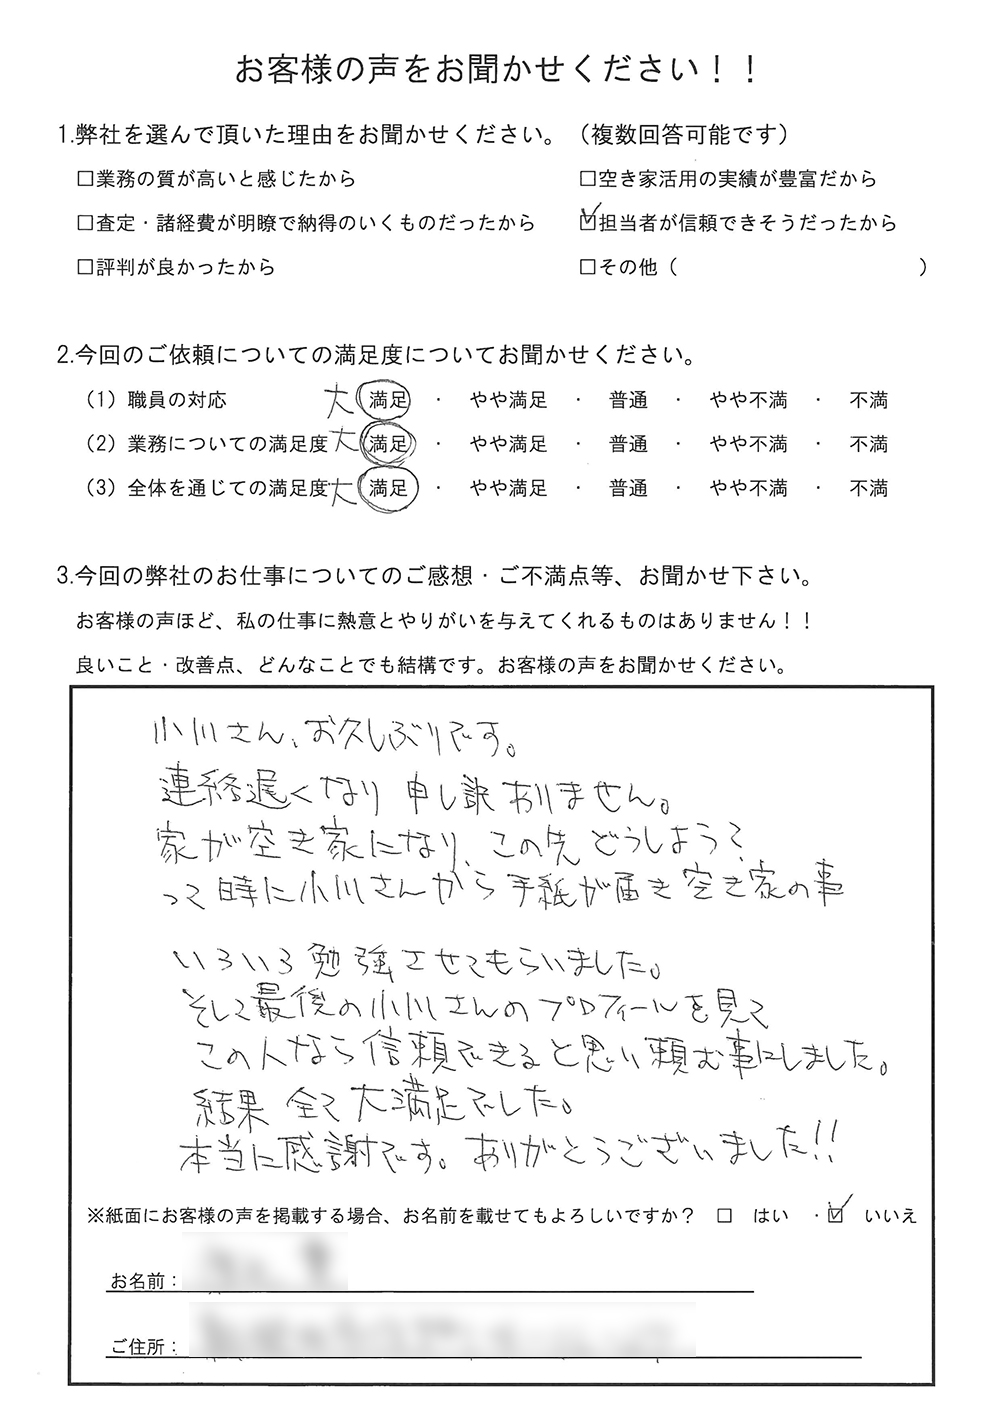 お客様の声をお聞かせください！！
1.弊社を選んで頂いた理由をお聞かせください。（複数回答可能です）
□業務の質が高いと感じたから　□空き家活用の実績が豊富だから
□査定・諸経費が明瞭で納得のいくものだったから　☑担当者が信頼できそうだったから
□評判が良かったから　□その他（　　　）
2.今回のご依頼についての満足度についてお聞かせください。
（1）職員の対応　大 満足　・　やや満足　・　普通　・　やや不満　・　不満
（2）業務についての満足度 大 満足　・　やや満足　・　普通　・　やや不満　・　不満
（3）全体を通じての満足度 大 満足　・　やや満足　・　普通　・　やや不満　・　不満
3.今回の弊社のお仕事についてのご感想・ご不満点等、お聞かせ下さい。
お客様の声ほど、私の仕事に熱意とやりがいを与えてくれるものはありません！！
良いこと・改善点、どんなことでも結構です。お客様の声をお聞かせください。
小川さん、お久しぶりです。
連絡遅くなり 申し訳おりません。
家が空き家になり、この先 どうしよう？
って時に小川さんから手紙が届き空き家の事
いろいろ勉強させてもらいました。
そして最後の小川さんのプロフィールを見て
この人なら信頼できると思い頼む事にしました。
結果 全て大満足でした。
本当に感謝です。ありがとうございました!!
※紙面にお客様の声を掲載する場合、お名前を載せてもよろしいですか？　□　はい　・☑　いいえ
お名前：
ご住所：